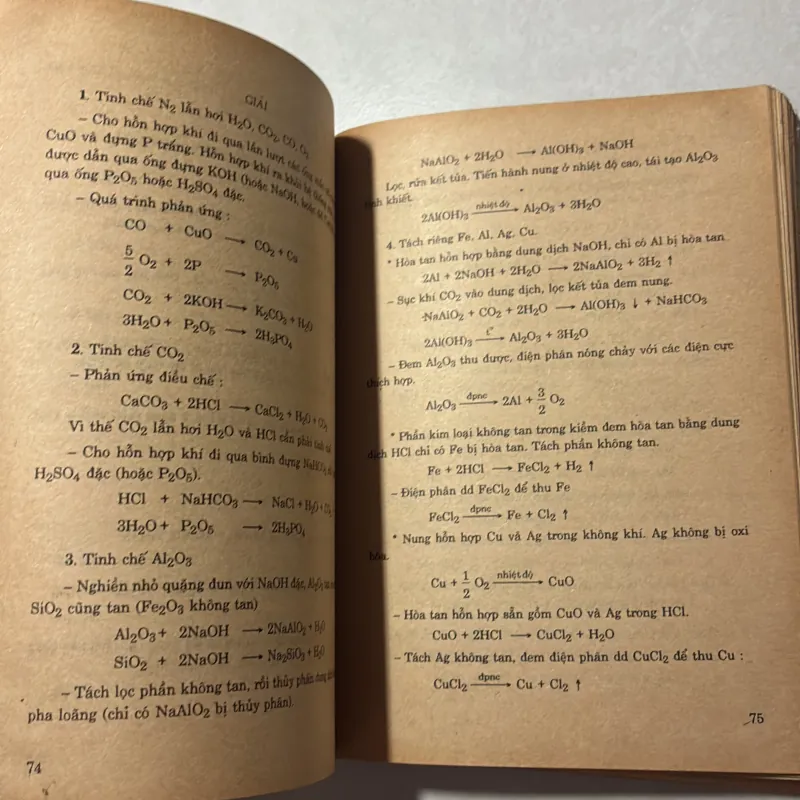 GIẢI
1. Tinh chế N₂ lẫn hơi H₂O, CO₂, CO, O₂
– Cho hỗn hợp khí đi qua lần lượt các ống
CuO và đựng P trắng. Hỗn hợp khí ra khỏi
được dẫn qua ống đựng KOH (hoặc NaOH,
qua ống P₂O₅ hoặc H₂SO₄ đặc.
– Quá trình phản ứng :
CO + CuO ⟶ CO₂ + Cu
5/2 O₂ + 2P ⟶ P₂O₅
CO₂ + 2KOH ⟶ K₂CO₃ + H₂O
3H₂O + P₂O₅ ⟶ 2H₃PO₄
2. Tinh chế CO₂
– Phản ứng điều chế :
CaCO₃ + 2HCl ⟶ CaCl₂ + H₂O + CO₂
Vì thế CO₂ lẫn hơi H₂O và HCl cần phải tinh
– Cho hỗn hợp khí đi qua bình đựng NaHCO₃,
H₂SO₄ đặc (hoặc P₂O₅).
HCl + NaHCO₃ ⟶ NaCl + H₂O + CO₂
3H₂O + P₂O₅ ⟶ 2H₃PO₄
3. Tinh chế Al₂O₃
– Nghiền nhỏ quặng đun với NaOH đặc, Al₂O₃ tan
SiO₂ cũng tan (Fe₂O₃ không tan)
Al₂O₃ + 2NaOH ⟶ 2NaAlO₂ + H₂O
SiO₂ + 2NaOH ⟶ Na₂SiO₃ + H₂O
– Tách lọc phần không tan, rồi thủy phân dung
pha loãng (chỉ có NaAlO₂ bị thủy phân).
74
NaAlO₂ + 2H₂O ⟶ Al(OH)₃ + NaOH
Lọc, rửa kết tủa. Tiến hành nung ở nhiệt độ cao, tái tạo Al₂O₃
tinh khiết.
2Al(OH)₃ nhiệt độ⟶ Al₂O₃ + 3H₂O
4. Tách riêng Fe, Al, Ag, Cu.
* Hòa tan hỗn hợp bằng dung dịch NaOH, chỉ có Al bị hòa tan
2Al + 2NaOH + 2H₂O ⟶ 2NaAlO₂ + 3H₂ ↑
– Sục khí CO₂ vào dung dịch, lọc kết tủa đem nung.
NaAlO₂ + CO₂ + 2H₂O ⟶ Al(OH)₃ ↓ + NaHCO₃
2Al(OH)₃ t°⟶ Al₂O₃ + 3H₂O
– Đem Al₂O₃ thu được, điện phân nóng chảy với các điện cực
thích hợp.
Al₂O₃ dpnc⟶ 2Al + 3/2 O₂
* Phần kim loại không tan trong kiềm đem hòa tan bằng dung
dịch HCl chỉ có Fe bị hòa tan. Tách phần không tan.
Fe + 2HCl ⟶ FeCl₂ + H₂ ↑
– Điện phân dd FeCl₂ để thu Fe
FeCl₂ dpnc⟶ Fe + Cl₂ ↑
* Nung hỗn hợp Cu và Ag trong không khí. Ag không bị oxi
hóa.
Cu + 1/2 O₂ nhiệt độ⟶ CuO
– Hòa tan hỗn hợp sẵn gồm CuO và Ag trong HCl.
CuO + 2HCl ⟶ CuCl₂ + H₂O
– Tách Ag không tan, đem điện phân dd CuCl₂ để thu Cu :
CuCl₂ dpnc⟶ Cu + Cl₂ ↑
75